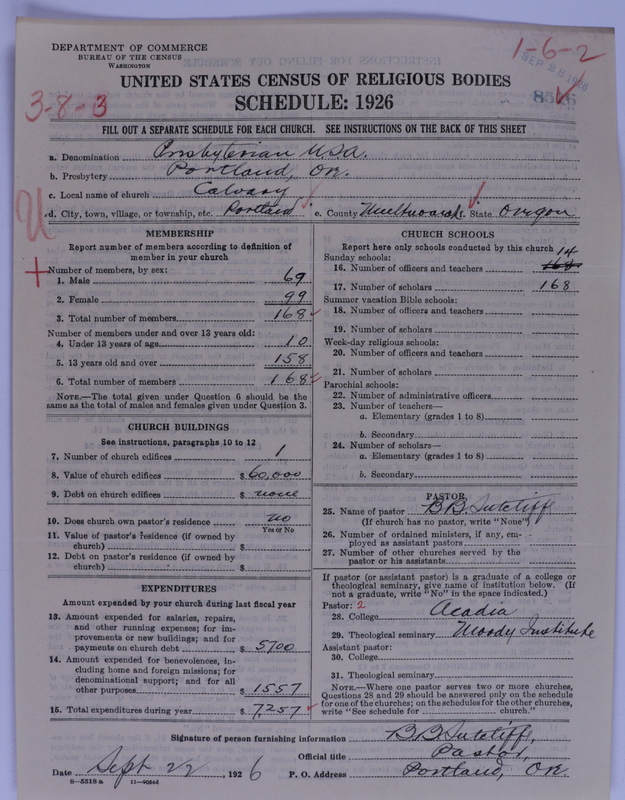 DEPARTMENT OF COMMERCE
BUREAU OF THE CENSUS
WASHINGTON
1-6-2
SEP 28 1926
3-8-3
UNITED STATES CENSUS OF RELIGIOUS BODIES
SCHEDULE: 1926
FILL OUT A SEPARATE SCHEDULE FOR EACH CHURCH. SEE INSTRUCTIONS ON THE BACK OF THIS SHEET
a. Denomination Presbyterian U.S.A.
b. Presbytery Portland, Or.
c. Local name of church Calvary
d. City, town, village, or township, etc. Portland e. County Multnomah f. State Oregon
MEMBERSHIP
Report number of members according to definition of
member in your church
Number of members, by sex:
1. Male 69
2. Female 99
3. Total number of members 168
Number of members under and over 13 years old:
4. Under 13 years of age 10
5. 13 years old and over 158
6. Total number of members 168
NOTE.—The total given under Question 6 should be
same as the total of males and females given under Question 3.
CHURCH BUILDINGS
See instructions, paragraphs 10 to 12
7. Number of church edifices 1
8. Value of church edifices $ 60,000
9. Debt on church edifices $ none
10. Does church own pastor's residence no
Yes or No
11. Value of pastor's residence (if owned by
church) $
12. Debt on pastor's residence (if owned by
church) $
EXPENDITURES
Amount expended by your church during last fiscal year
13. Amount expended for salaries, repairs,
and other running expenses; for im-
provements or new buildings; and for
payments on church debt $ 5700
14. Amount expended for benevolences, in-
cluding home and foreign missions; for
denominational support; and for all
other purposes $ 1557
15. Total expenditures during year $ 7257
CHURCH SCHOOLS
Report here only schools conducted by this church
Sunday schools: 14
16. Number of officers and teachers 168
17. Number of scholars 168
Summer vacation Bible schools:
18. Number of officers and teachers
19. Number of scholars
Week-day religious schools:
20. Number of officers and teachers
21. Number of scholars
Parochial schools:
22. Number of administrative officers
23. Number of teachers—
a. Elementary (grades 1 to 8)
b. Secondary
24. Number of scholars—
a. Elementary (grades 1 to 8)
b. Secondary
PASTOR
25. Name of pastor B.B. Sutcliff
(If church has no pastor, write "None")
26. Number of ordained ministers, if any, em-
ployed as assistant pastors
27. Number of other churches served by the
pastor or his assistants
If pastor (or assistant pastor) is a graduate of a college or
theological seminary, give name of institution below. (If
not a graduate, write "No" in the space indicated.)
Pastor: 2
28. College Acadia
29. Theological seminary Moody Institute
Assistant pastor:
30. College
31. Theological seminary
NOTE.—Where one pastor serves two or more churches,
Questions 28 and 29 should be answered only on the schedule
for one of the churches; on the schedules for the other churches,
write "See schedule for church."
Signature of person furnishing information B.B. Sutcliff,
Official title Pastor,
Date Sept 22, 1926 P. O. Address Portland, Or.
8—5518a 11—9054d